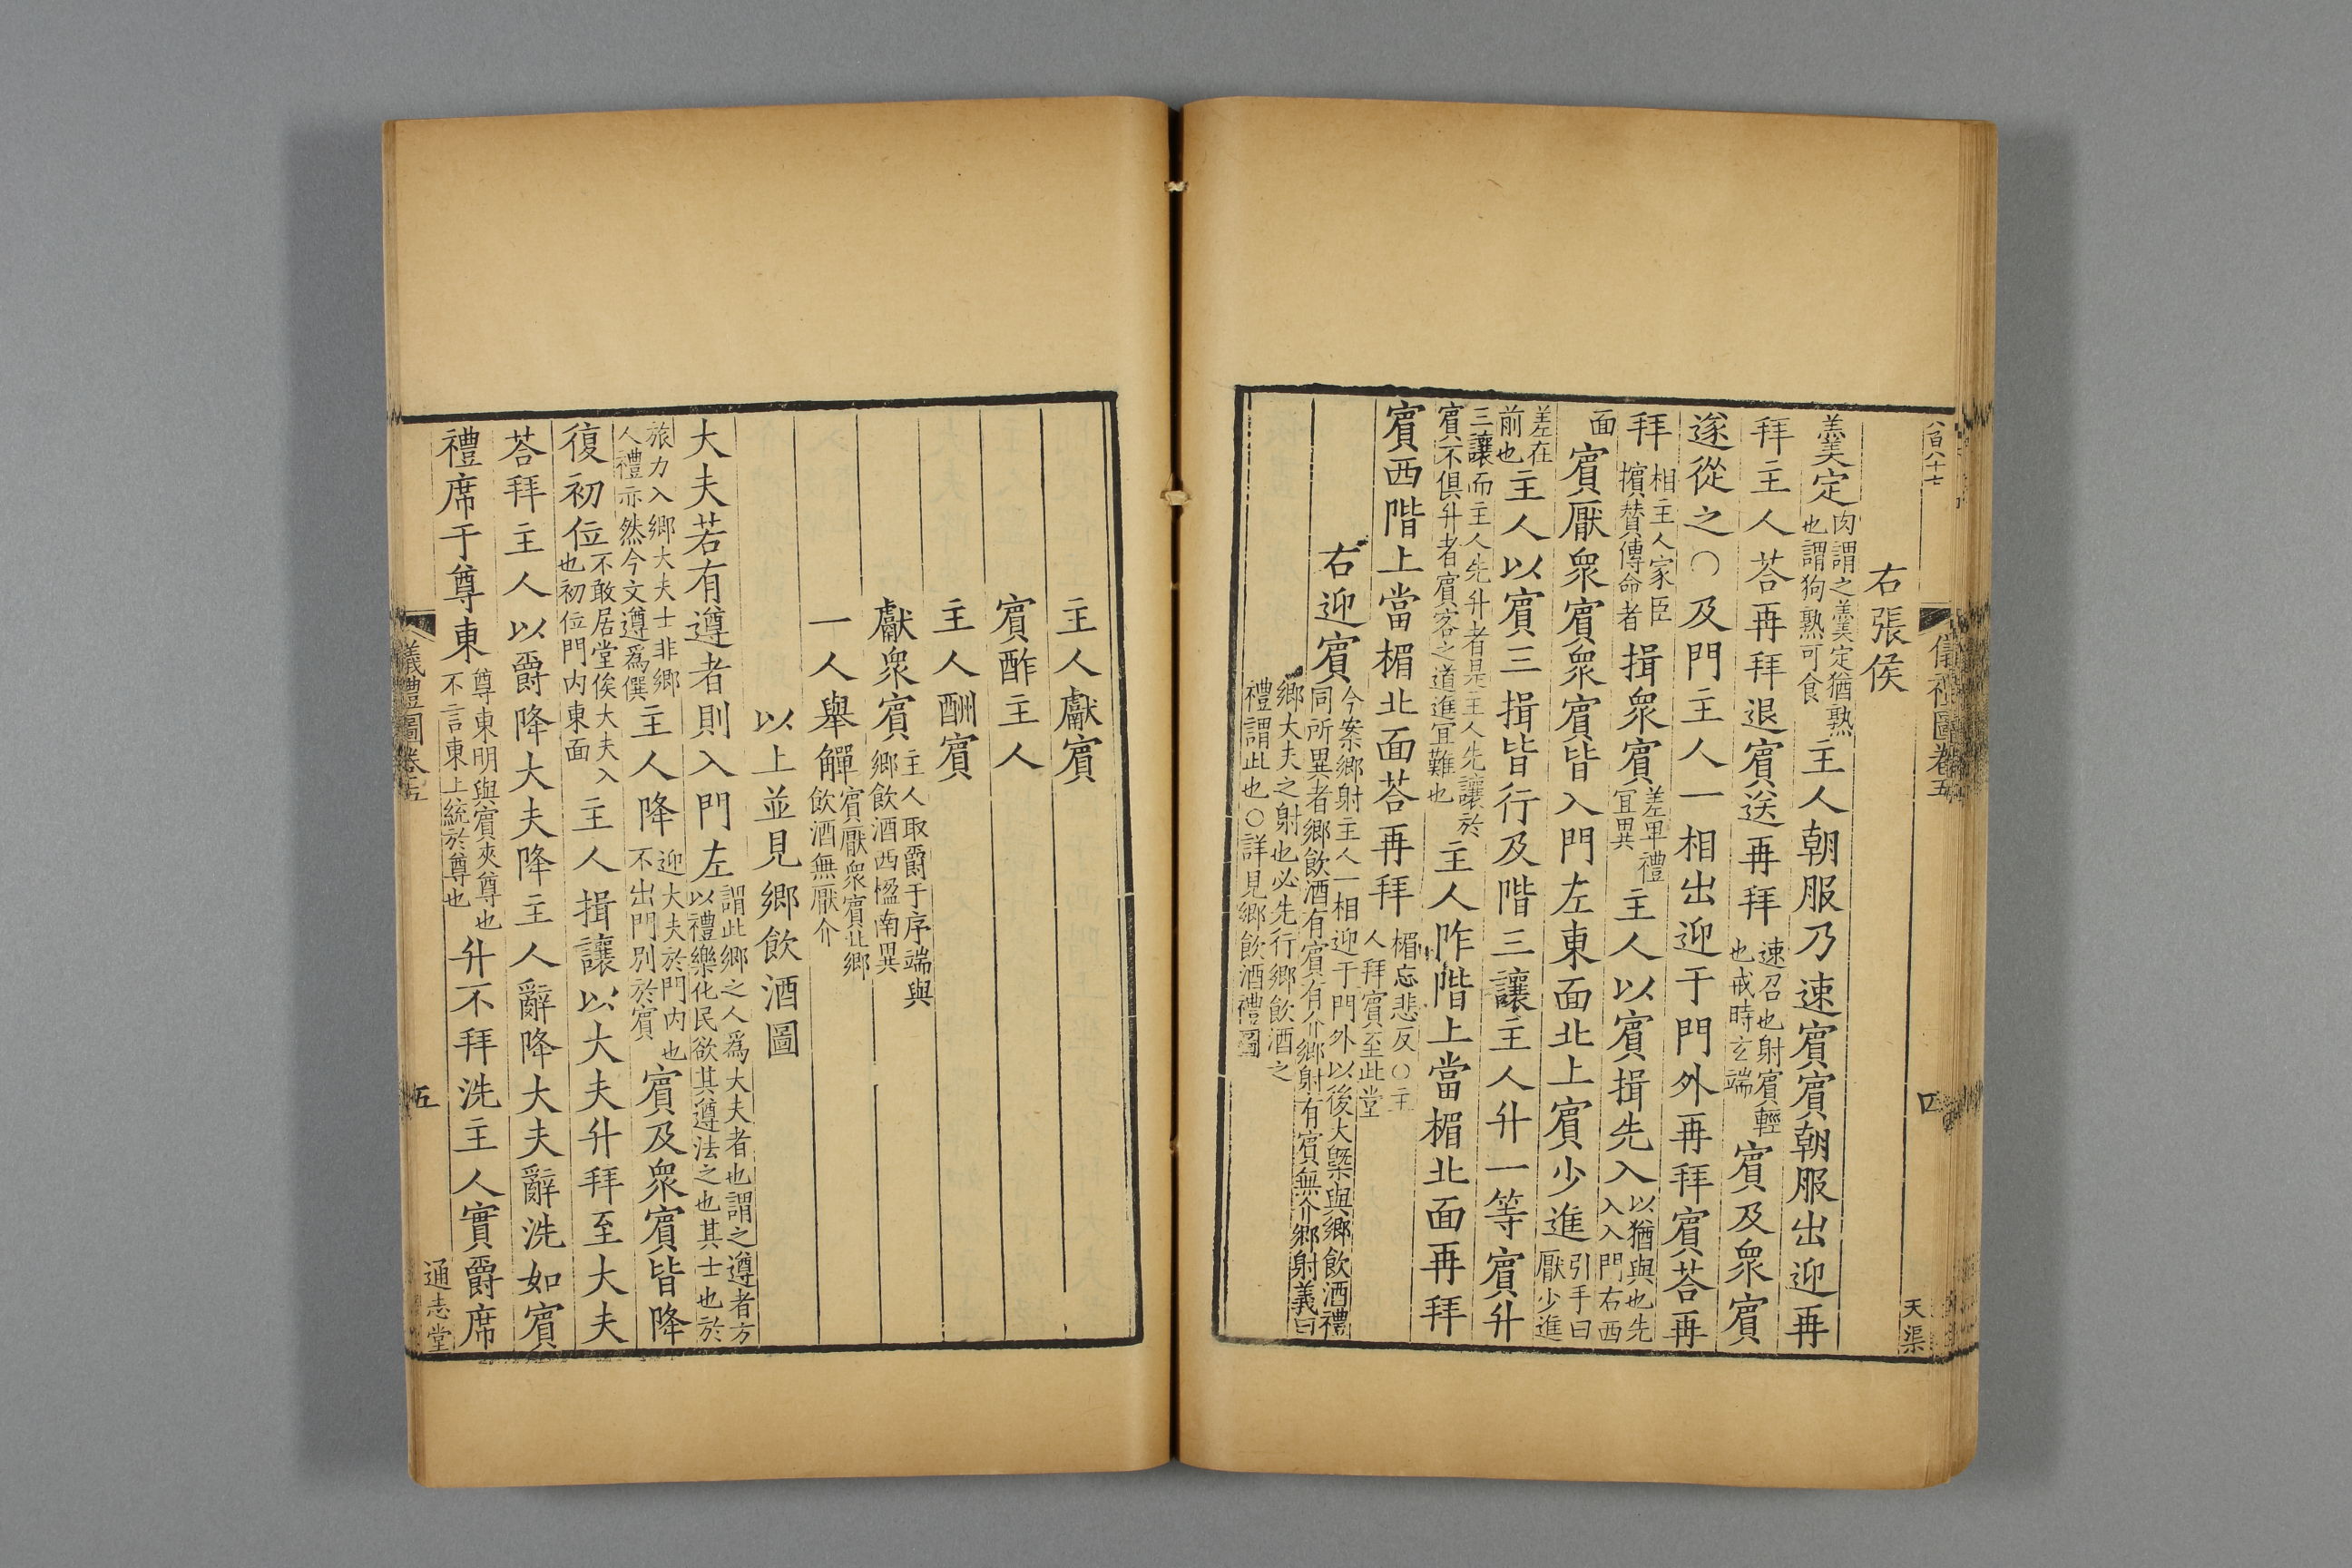 八百八十七
儀禮圖卷五
四
天渠
右張侯
羹定肉謂之羹定猶熟也謂狗熟可食主人朝服乃速賓賓朝服出迎再
拜主人荅再拜退賓送再拜速召也射賓輕也戒時玄端賓及衆賓
遂從之○及門主人一相出迎于門外再拜賓荅再
拜相主人家臣擯賛傳命者揖衆賓差卑禮宜異主人以賓揖先入以猶與也先入入門右西
面賓厭衆賓衆賓皆入門左東面北上賓少進引手曰厭少進
差在前也主人以賓三揖皆行及階三讓主人升一等賓升
三讓而主人先升者是主人先讓於賓不俱升者賓客之道進宜難也主人阼階上當楣北面再拜
賓西階上當楣北面荅再拜楣忘悲反○主人拜賓至此堂
右迎賓今案鄉射主人一相迎于門外以後大槩與鄉飲酒禮同所異者鄉飲酒有賓有介鄉射有賓無介鄉射義曰
鄉大夫之射也必先行鄉飲酒之禮謂此也○詳見鄉飲酒禮圖
主人獻賓
賓酢主人
主人酬賓
獻衆賓主人取爵于序端與鄉飲酒西楹南異
一人舉觶賓厭衆賓此鄉飲酒無厭介
以上並見鄉飲酒圖
大夫若有遵者則入門左謂此鄉之人爲大夫者也謂之遵者方以禮樂化民欲其遵法之也其士也於
旅力入鄉大夫士非鄉人禮亦然今文遵爲僎主人降迎大夫於門内也不出門別於賓賓及衆賓皆降
復初位不敢居堂俟大夫入也初位門内東面主人揖讓以大夫升拜至大夫
荅拜主人以爵降大夫降主人辭降大夫辭洗如賓
禮席于尊東尊東明與賓夾尊也不言東上統於尊也升不拜洗主人實爵席
儀禮圖卷五
五
通志堂